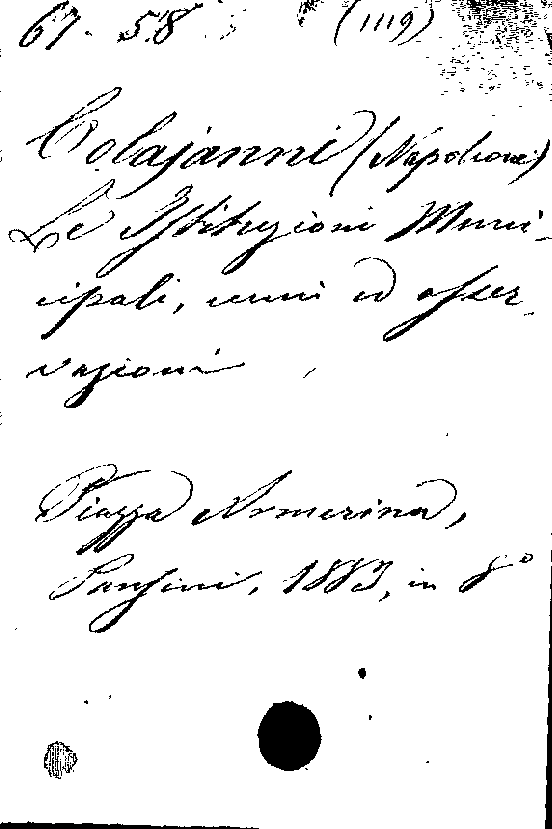 67. 58 (1119)
Colajanni (Napoleone)
Le Istituzioni Muni-
cipali, cenni ed osser-
vazioni
Piazza Armerina,
Pansini, 1883, in 8º